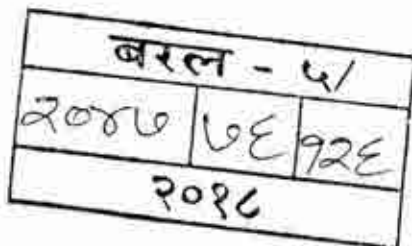 बरल - ५/
२०४७ ७६ १२६
२०१८